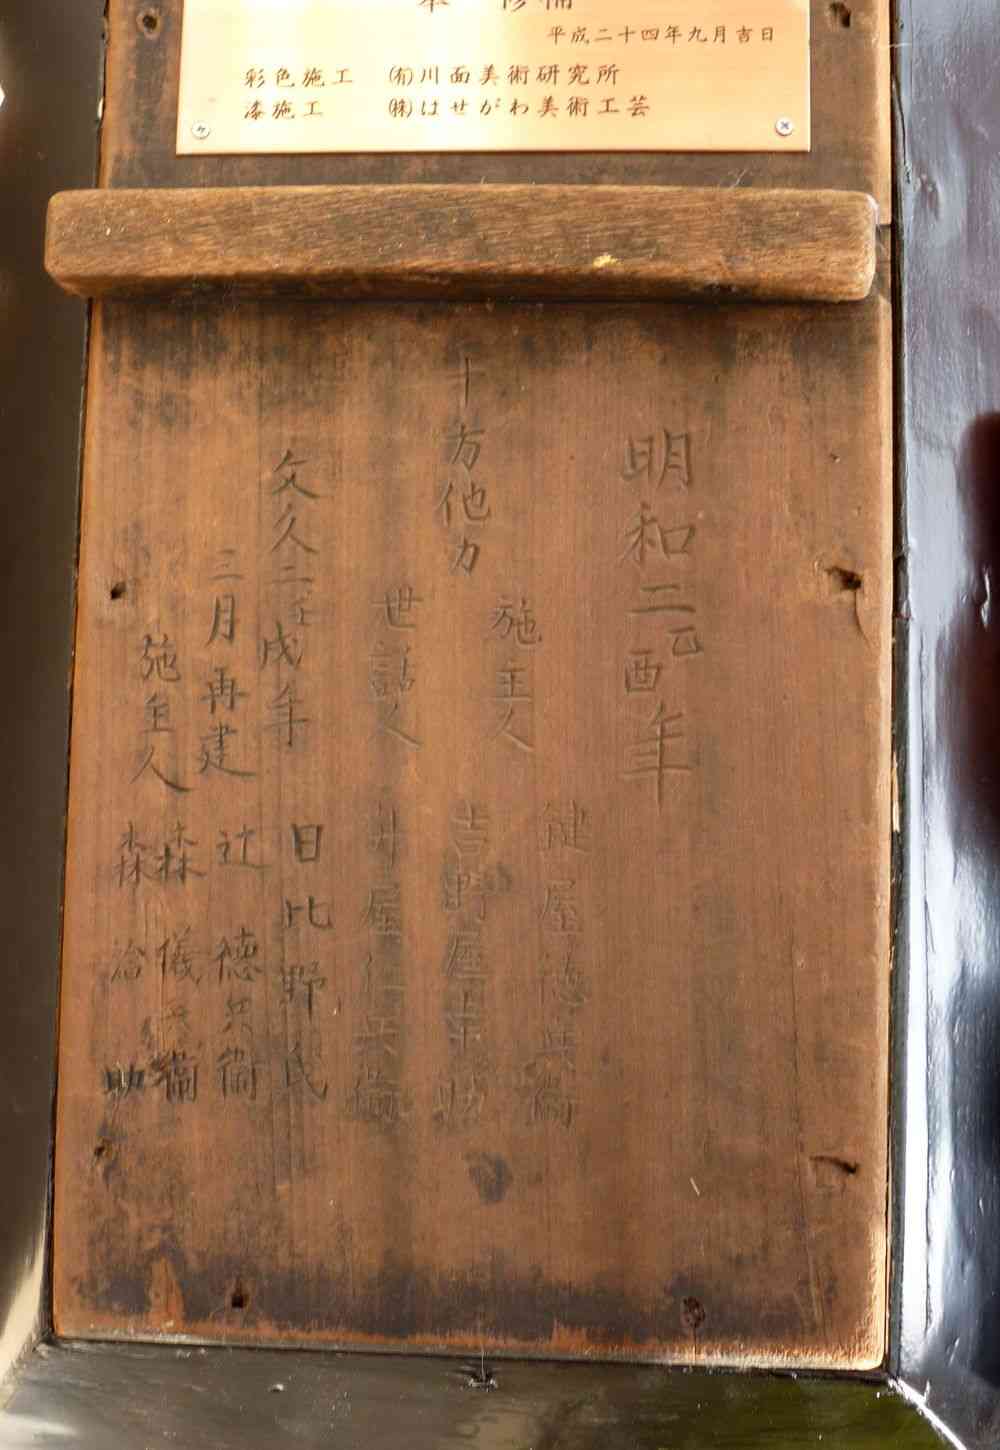 修補
平成二十四年九月吉日
彩色施工 ㈲川面美術研究所
漆施工 ㈱はせがわ美術工芸
明和二乙酉年
十方他力
施主人 鍵屋徳兵衛
吉野屋吉助
世話人 井屋仁兵衛
文久二壬戌年
三月再建
施主人
日比野氏
辻 徳兵衛
森 儀兵衛
森 治助